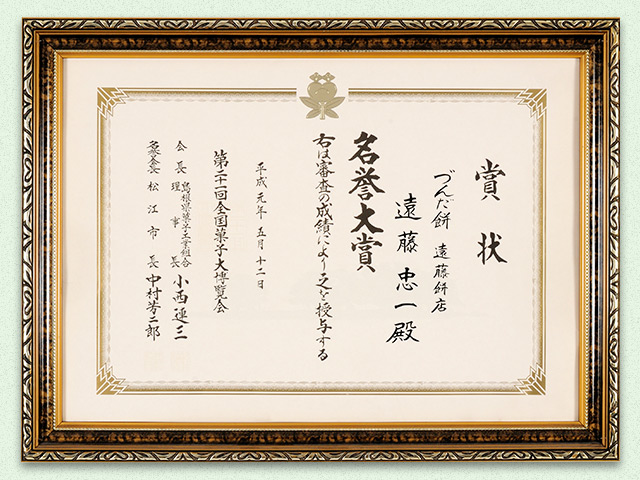 賞状
づんだ餅 遠藤餅店
遠藤忠一殿
名誉大賞
右は審査の成績により之を授与する
平成元年五月十二日
第二十一回全国菓子大博覧会
会長 島根県菓子工業組合理事長 小西運三
名誉会長 松江市長 中村芳二郎